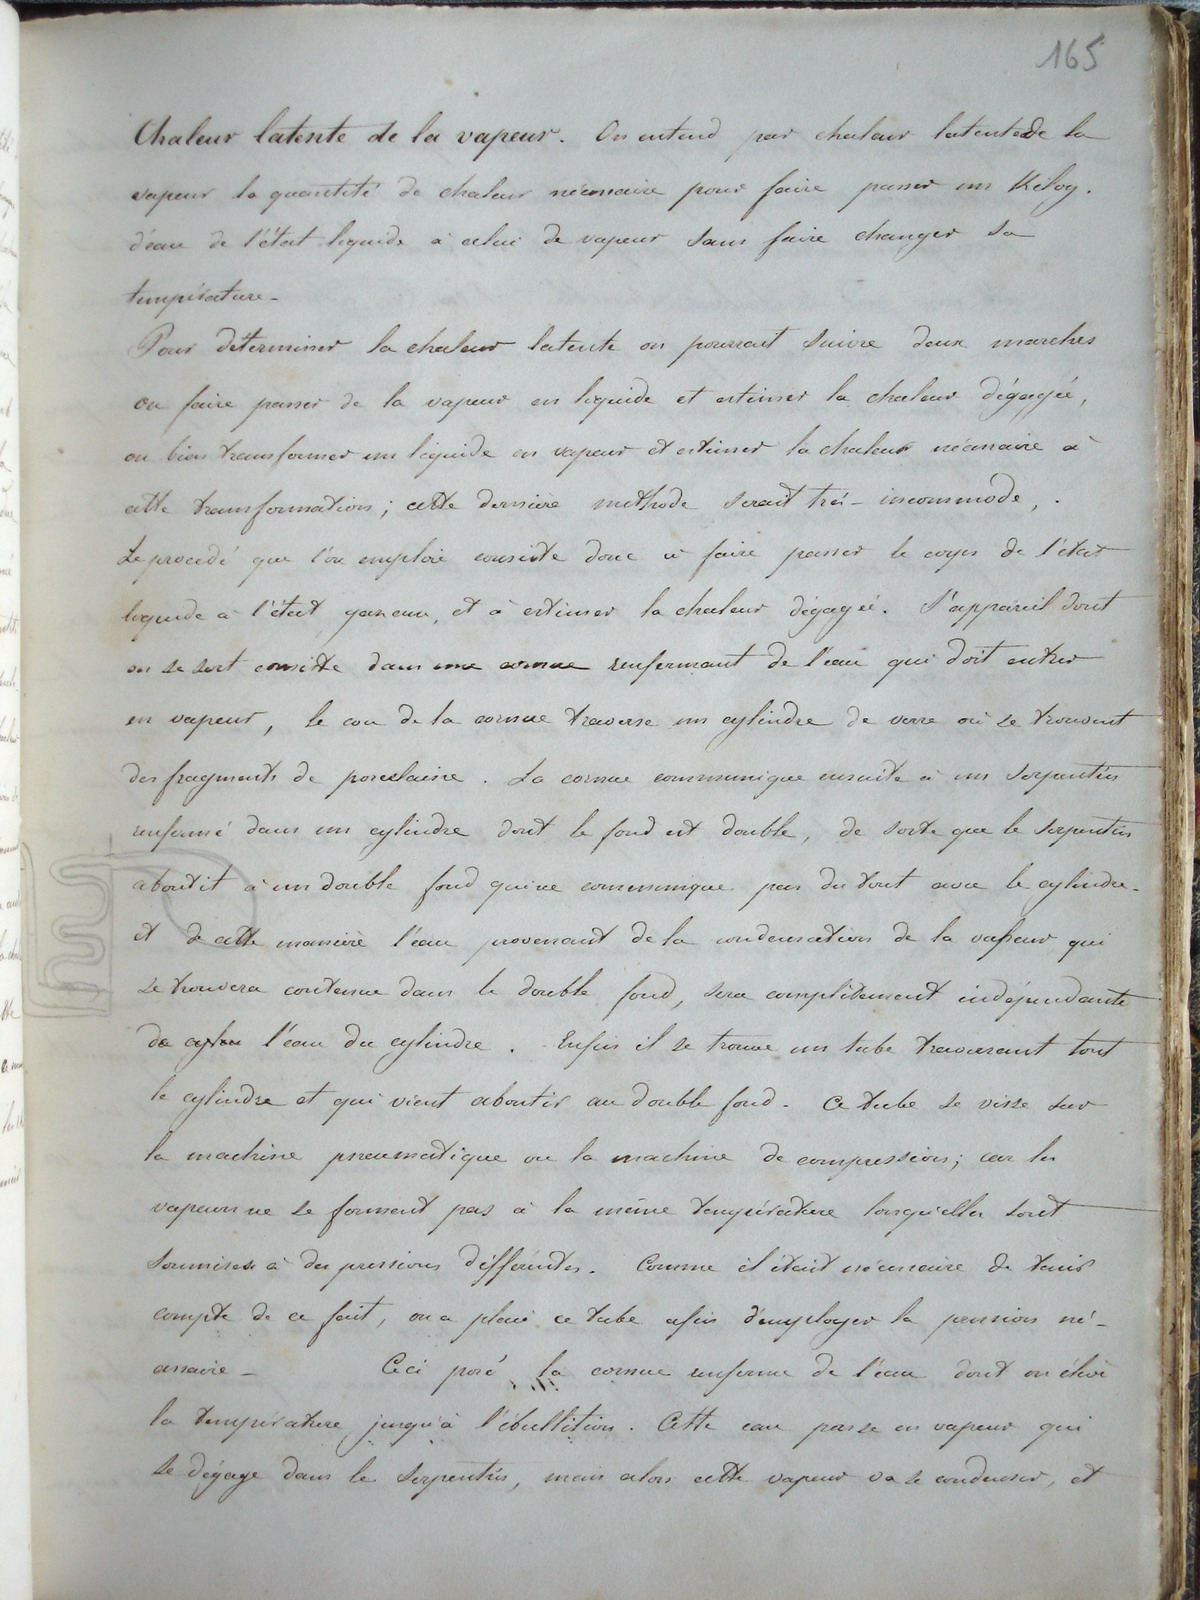 165
Chaleur latente de la vapeur. On entend par chaleur latente de la
vapeur la quantité de chaleur nécessaire pour faire passer un Kilog.
d'eau de l'état liquide à celui de vapeur sans faire changer sa
température -
Pour déterminer la chaleur latente on pourrait suivre deux marches
ou faire passer de la vapeur en liquide et estimer la chaleur dégagée,
ou bien transformer un liquide en vapeur et estimer la chaleur nécessaire à
cette transformation ; cette dernière méthode serait très-incommode, .
Le procédé que l'on emploie consiste donc à faire passer le corps de l'état
liquide à l'état gazeux, et à estimer la chaleur dégagée. L'appareil dont
on se sert consiste dans une cornue renfermant de l'eau qui doit entrer
en vapeur, le cou de la cornue traverse un cylindre de verre où se trouvent
des fragments de porcelaine. La cornue communique ensuite à un serpentin
renfermé dans un cylindre dont le fond est double, de sorte que le serpentin
aboutit à un double fond qui ne communique pas du tout avec le cylindre -
et de cette manière l'eau provenant de la condensation de la vapeur qui
se trouvera contenue dans le double fond, sera complètement indépendante
de l'eau du cylindre. Enfin il se trouve un tube traversant tout
le cylindre et qui vient aboutir au double fond - Ce tube se visse sur
la machine pneumatique ou la machine de compression ; car les
vapeurs ne se forment pas à la même température lorsqu'elles sont
soumises à des pressions différentes. Comme il était nécessaire de tenir
compte de ce fait, on a placé ce tube afin d'employer la pression né-
cessaire - Ceci posé la cornue renferme de l'eau dont on élève
la température jusqu'à l'ébullition. Cette eau passe en vapeur qui
se dégage dans le serpentin, mais alors cette vapeur va se condenser, et